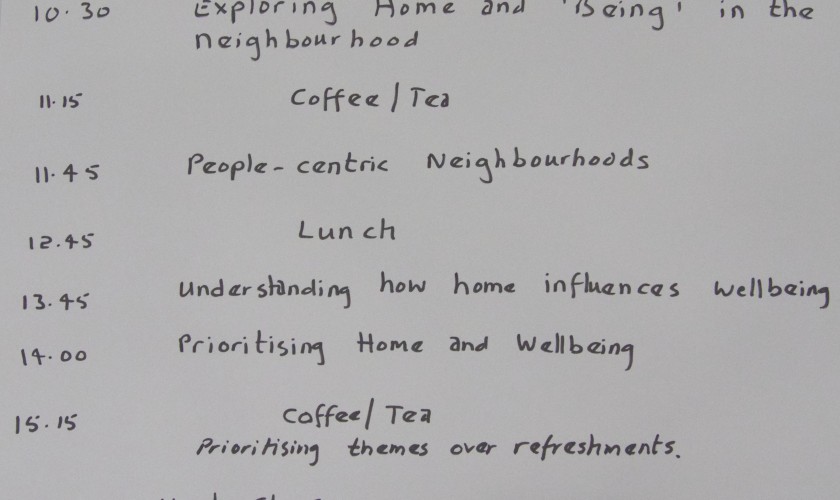 10.30 Exploring Home and 'Being' in the
neighbourhood
11.15 Coffee/Tea
11.45 People-centric Neighbourhoods
12.45 Lunch
13.45 Understanding how home influences wellbeing
14.00 Prioritising Home and Wellbeing
15.15 Coffee/Tea
Prioritising themes over refreshments.